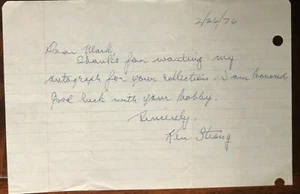 2/26/76
Dear Mark,
Thanks for wanting my
autograph for your collection. I am honored.
Good luck with your hobby.
Sincerely,
Ken Strong